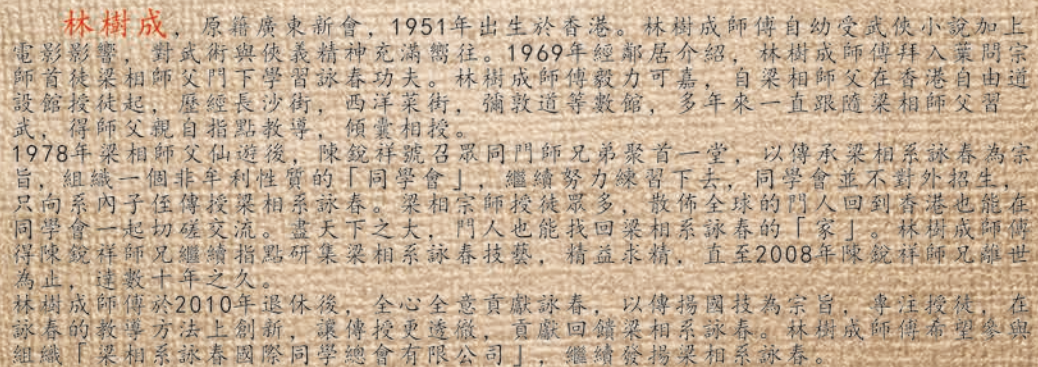 林樹成，原籍廣東新會，1951年出生於香港。林樹成師傅自幼受武俠小說加上
電影影響，對武術與俠義精神充滿嚮往。1969年經鄰居介紹，林樹成師傅拜入葉問宗
師首徒梁相師父門下學習詠春功夫。林樹成師傅毅力可嘉，自梁相師父在香港自由道
設館授徒起，歷經長沙街，西洋菜街，彌敦道等數館，多年來一直跟隨梁相師父習
武，得師父親自指點教導，傾囊相授。
1978年梁相師父仙遊後，陳銳祥號召眾同門師兄弟聚首一堂，以傳承梁相系詠春為宗
旨，組織一個非牟利性質的「同學會」，繼續努力練習下去，同學會並不對外招生，
只向系內子侄傳授梁相系詠春。梁相宗師授徒眾多，散佈全球的門人回到香港也能在
同學會一起切磋交流。盡天下之大，門人也能找回梁相系詠春的「家」。林樹成師傅
得陳銳祥師兄繼續指點研集梁相系詠春技藝，精益求精，直至2008年陳銳祥師兄離世
為止，達數十年之久。
林樹成師傅於2010年退休後，全心全意貢獻詠春，以傳揚國技為宗旨，專注授徒，在
詠春的教導方法上創新，讓傳授更透徹，貢獻回饋梁相系詠春。林樹成師傅希望參與
組織「梁相系詠春國際同學總會有限公司」，繼續發揚梁相系詠春。